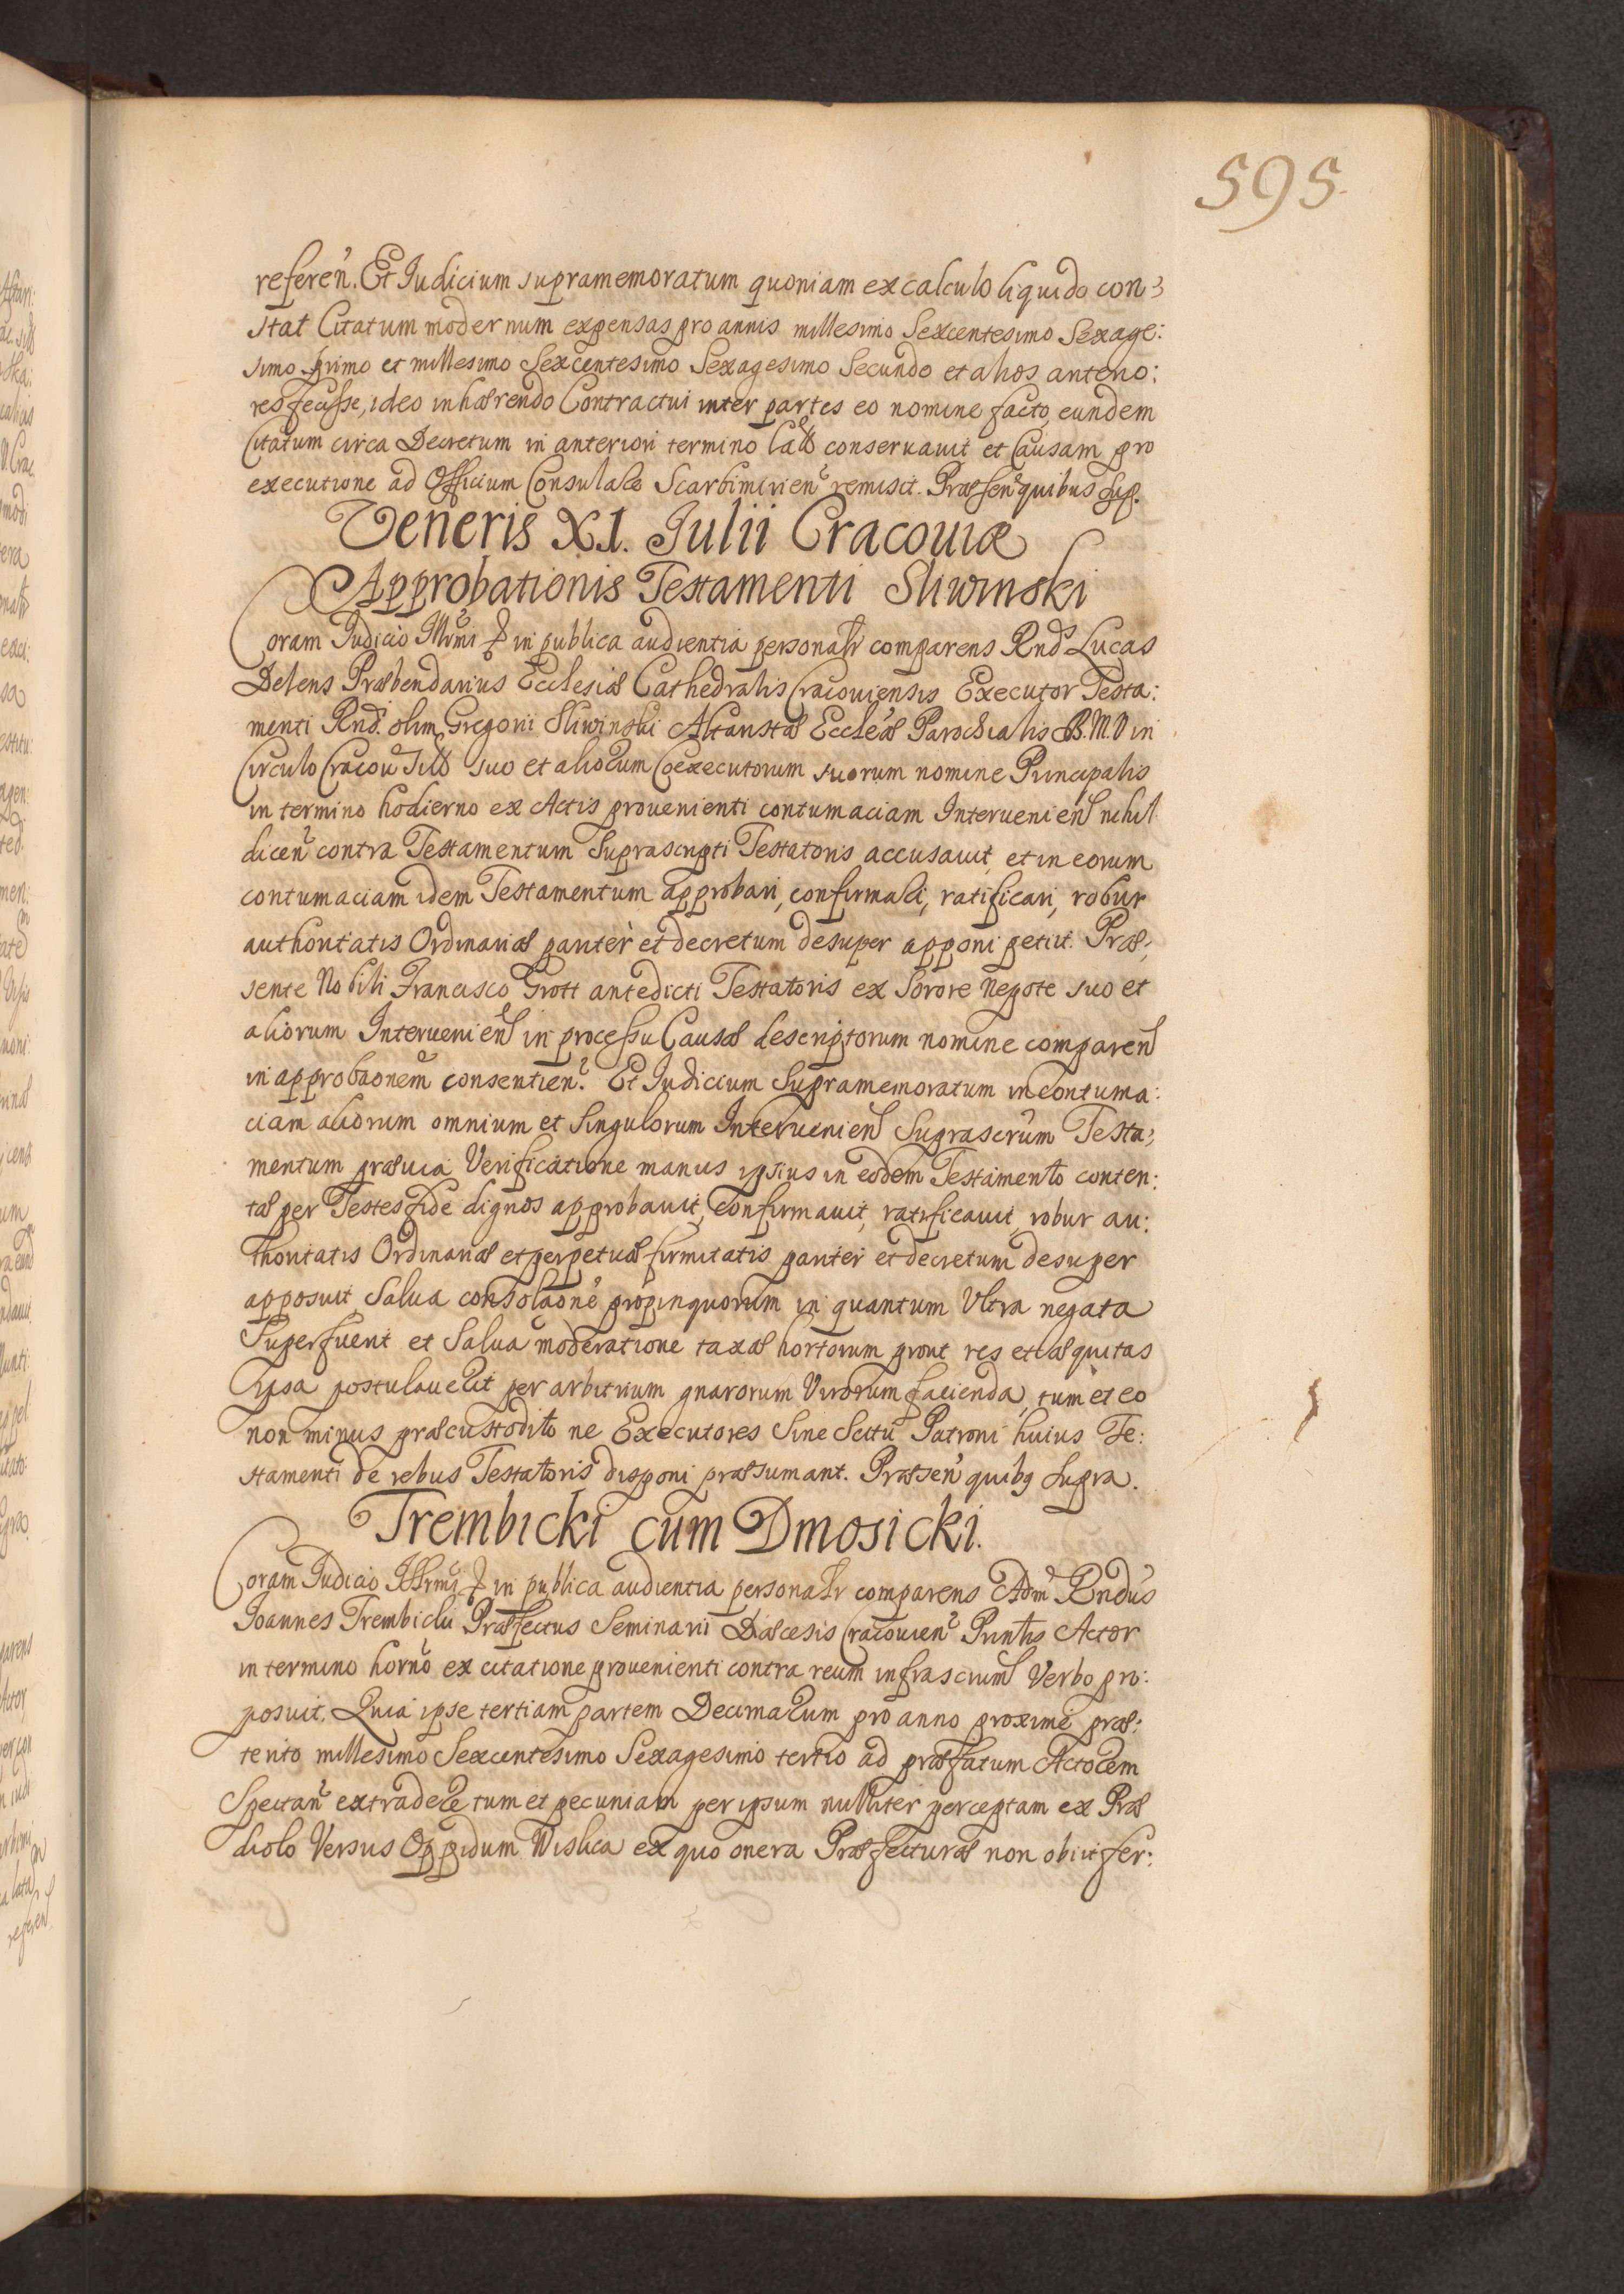 595.
referen̄. Et Judicium supramemoratum quoniam ex calculo liquido con:
stat Citatum modernum expensas pro annis millesimo Sexcentesimo Sexage:
simo primo et millesimo Sexcentesimo Sexagesimo Secundo et alios anterio:
res fecisse, ideo inhærendo Contractui inter partes eo nomine facto, eundem
Citatum circa Decretum in anteriori termino conservavit et Causam pro
executione ad Officium Consulare Scarbimirien̄ remisit. Præsen̄ quibus Sup.
Veneris XI. Julii Cracoviæ
Approbationis Testamenti Sliwinski
Coram Judicio Illrmi & in publica audientia personalr comparens Rnds Lucas
Delens Præbendarius Ecclesiæ Cathedralis Cracoviensis Executor Testa:
menti Rndi olim Gregorii Sliwinski Altaristæ Eccleæ Parochialis B.M.V in
Circulo Cracov suo et aliorum Coexecutorum suorum nomine Principalis
in termino hodierno ex Actis provenienti contumaciam Intervenien̄ nihil
dicen̄ contra Testamentum Suprascripti Testatoris accusavit, et in eorum
contumaciam idem Testamentum approbari, confirmari, ratificari, robur
authoritatis Ordinariæ pariter et decretum desuper apponi petiit. Præ:
sente Nobili Francisco Grott antedicti Testatoris ex Sorore Nepote suo et
aliorum Intervenien̄ in processu Causæ descriptorum nomine comparen̄
in approbaonem consentien̄. Et Judicium Supramemoratum in contuma:
ciam aliorum omnium et Singulorum Intervenien̄ Suprascrum Testa:
mentum prævia Verificatione manus ipsius in eodem Testamento conten:
tæ per Testes fide dignos approbavit, confirmavit, ratificavit, robur au:
thoritatis Ordinariæ et perpetuæ firmitatis pariter et decretum desuper
apposuit Salva consolaone propinquorum in quantum Ultra negata
Superfuerit et Salva moderatione taxæ hortorum prout res et æquitas
ipsa postulaverit per arbitrium gnarorum Virorum facienda, tum et eo
non minus præcustodito ne Executores Sine Scitu Patroni huius Te:
stamenti de rebus Testatoris disponi præsumant. Præsen̄ quibq Supra.
Trembicki cum Dmosicki.
Coram Judicio Illrmi & in publica audientia personalr comparens Adm Rndus
Joannes Trembicki Præfectus Seminarii Diæcesis Cracovien̄ Prin̄tis Actor
in termino horno ex citatione provenienti contra reum infrascrium Verbo pro:
posuit. Quia ipse tertiam partem Decimarum pro anno proxime præ:
terito millesimo Sexcentesimo Sexagesimo tertio ad præfatum Actorem
Spectan̄ extradere tum et pecuniam per ipsum nulliter perceptam ex Præ
diolo Versus Oppidum Wislica ex quo onera Præfecturæ non obiit fer: